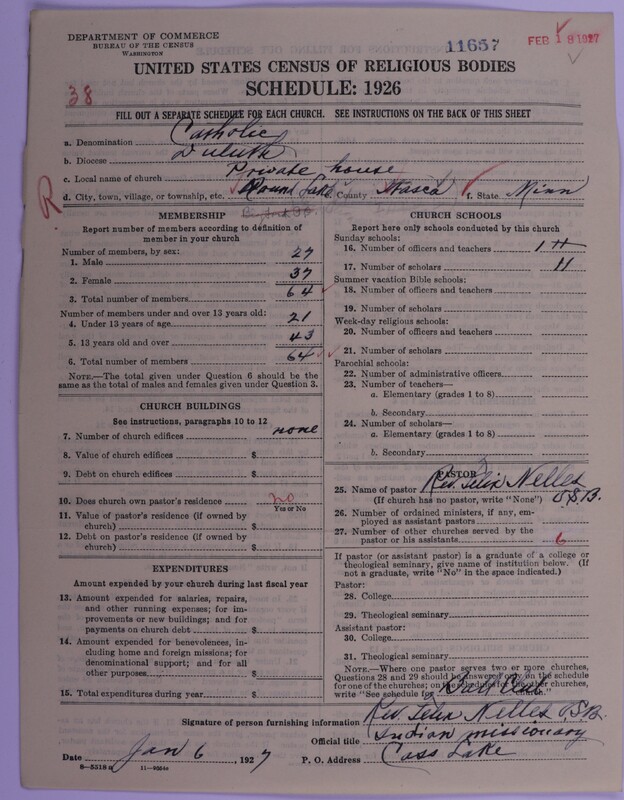 DEPARTMENT OF COMMERCE
BUREAU OF THE CENSUS
WASHINGTON
11657
FEB 18 1927
UNITED STATES CENSUS OF RELIGIOUS BODIES
SCHEDULE: 1926
38
FILL OUT A SEPARATE SCHEDULE FOR EACH CHURCH. SEE INSTRUCTIONS ON THE BACK OF THIS SHEET
a. Denomination Catholic
b. Diocese Duluth
c. Local name of church Private house
R d. City, town, village, or township, etc. Round Lake e. County Itasca f. State Minn
MEMBERSHIP
Report number of members according to definition of
member in your church
Number of members, by sex:
1. Male 27
2. Female 37
3. Total number of members 64
Number of members under and over 13 years old:
4. Under 13 years of age 21
5. 13 years old and over 43
6. Total number of members 64
NOTE.—The total given under Question 6 should be the
same as the total of males and females given under Question 3.
CHURCH BUILDINGS
See instructions, paragraphs 10 to 12
7. Number of church edifices none
8. Value of church edifices $
9. Debt on church edifices $
10. Does church own pastor's residence no
Yes or No
11. Value of pastor's residence (if owned by
church) $
12. Debt on pastor's residence (if owned by
church) $
EXPENDITURES
Amount expended by your church during last fiscal year
13. Amount expended for salaries, repairs,
and other running expenses; for im-
provements or new buildings; and for
payments on church debt $
14. Amount expended for benevolences, in-
cluding home and foreign missions; for
denominational support; and for all
other purposes $
15. Total expenditures during year $
CHURCH SCHOOLS
Report here only schools conducted by this church
Sunday schools:
16. Number of officers and teachers 1
17. Number of scholars 11
Summer vacation Bible schools:
18. Number of officers and teachers
19. Number of scholars
Week-day religious schools:
20. Number of officers and teachers
21. Number of scholars
Parochial schools:
22. Number of administrative officers
23. Number of teachers—
a. Elementary (grades 1 to 8)
b. Secondary
24. Number of scholars—
a. Elementary (grades 1 to 8)
b. Secondary
PASTOR
25. Name of pastor Rev. Felix Nelles
(If church has no pastor, write "None") O.S.B.
26. Number of ordained ministers, if any, em-
ployed as assistant pastors
27. Number of other churches served by the
pastor or his assistants 6
If pastor (or assistant pastor) is a graduate of a college or
theological seminary, give name of institution below. (If
not a graduate, write "No" in the space indicated.)
Pastor:
28. College
29. Theological seminary
Assistant pastor:
30. College
31. Theological seminary
NOTE.—Where one pastor serves two or more churches,
Questions 28 and 29 should be answered only on the schedule
for one of the churches; on the schedules for the other churches,
write "See schedule for church."
Signature of person furnishing information Rev. Felix Nelles O.S.B.
Official title Indian missionary
Date Jan 6, 1927 P. O. Address Cass Lake
8-5318 a 11-9554a